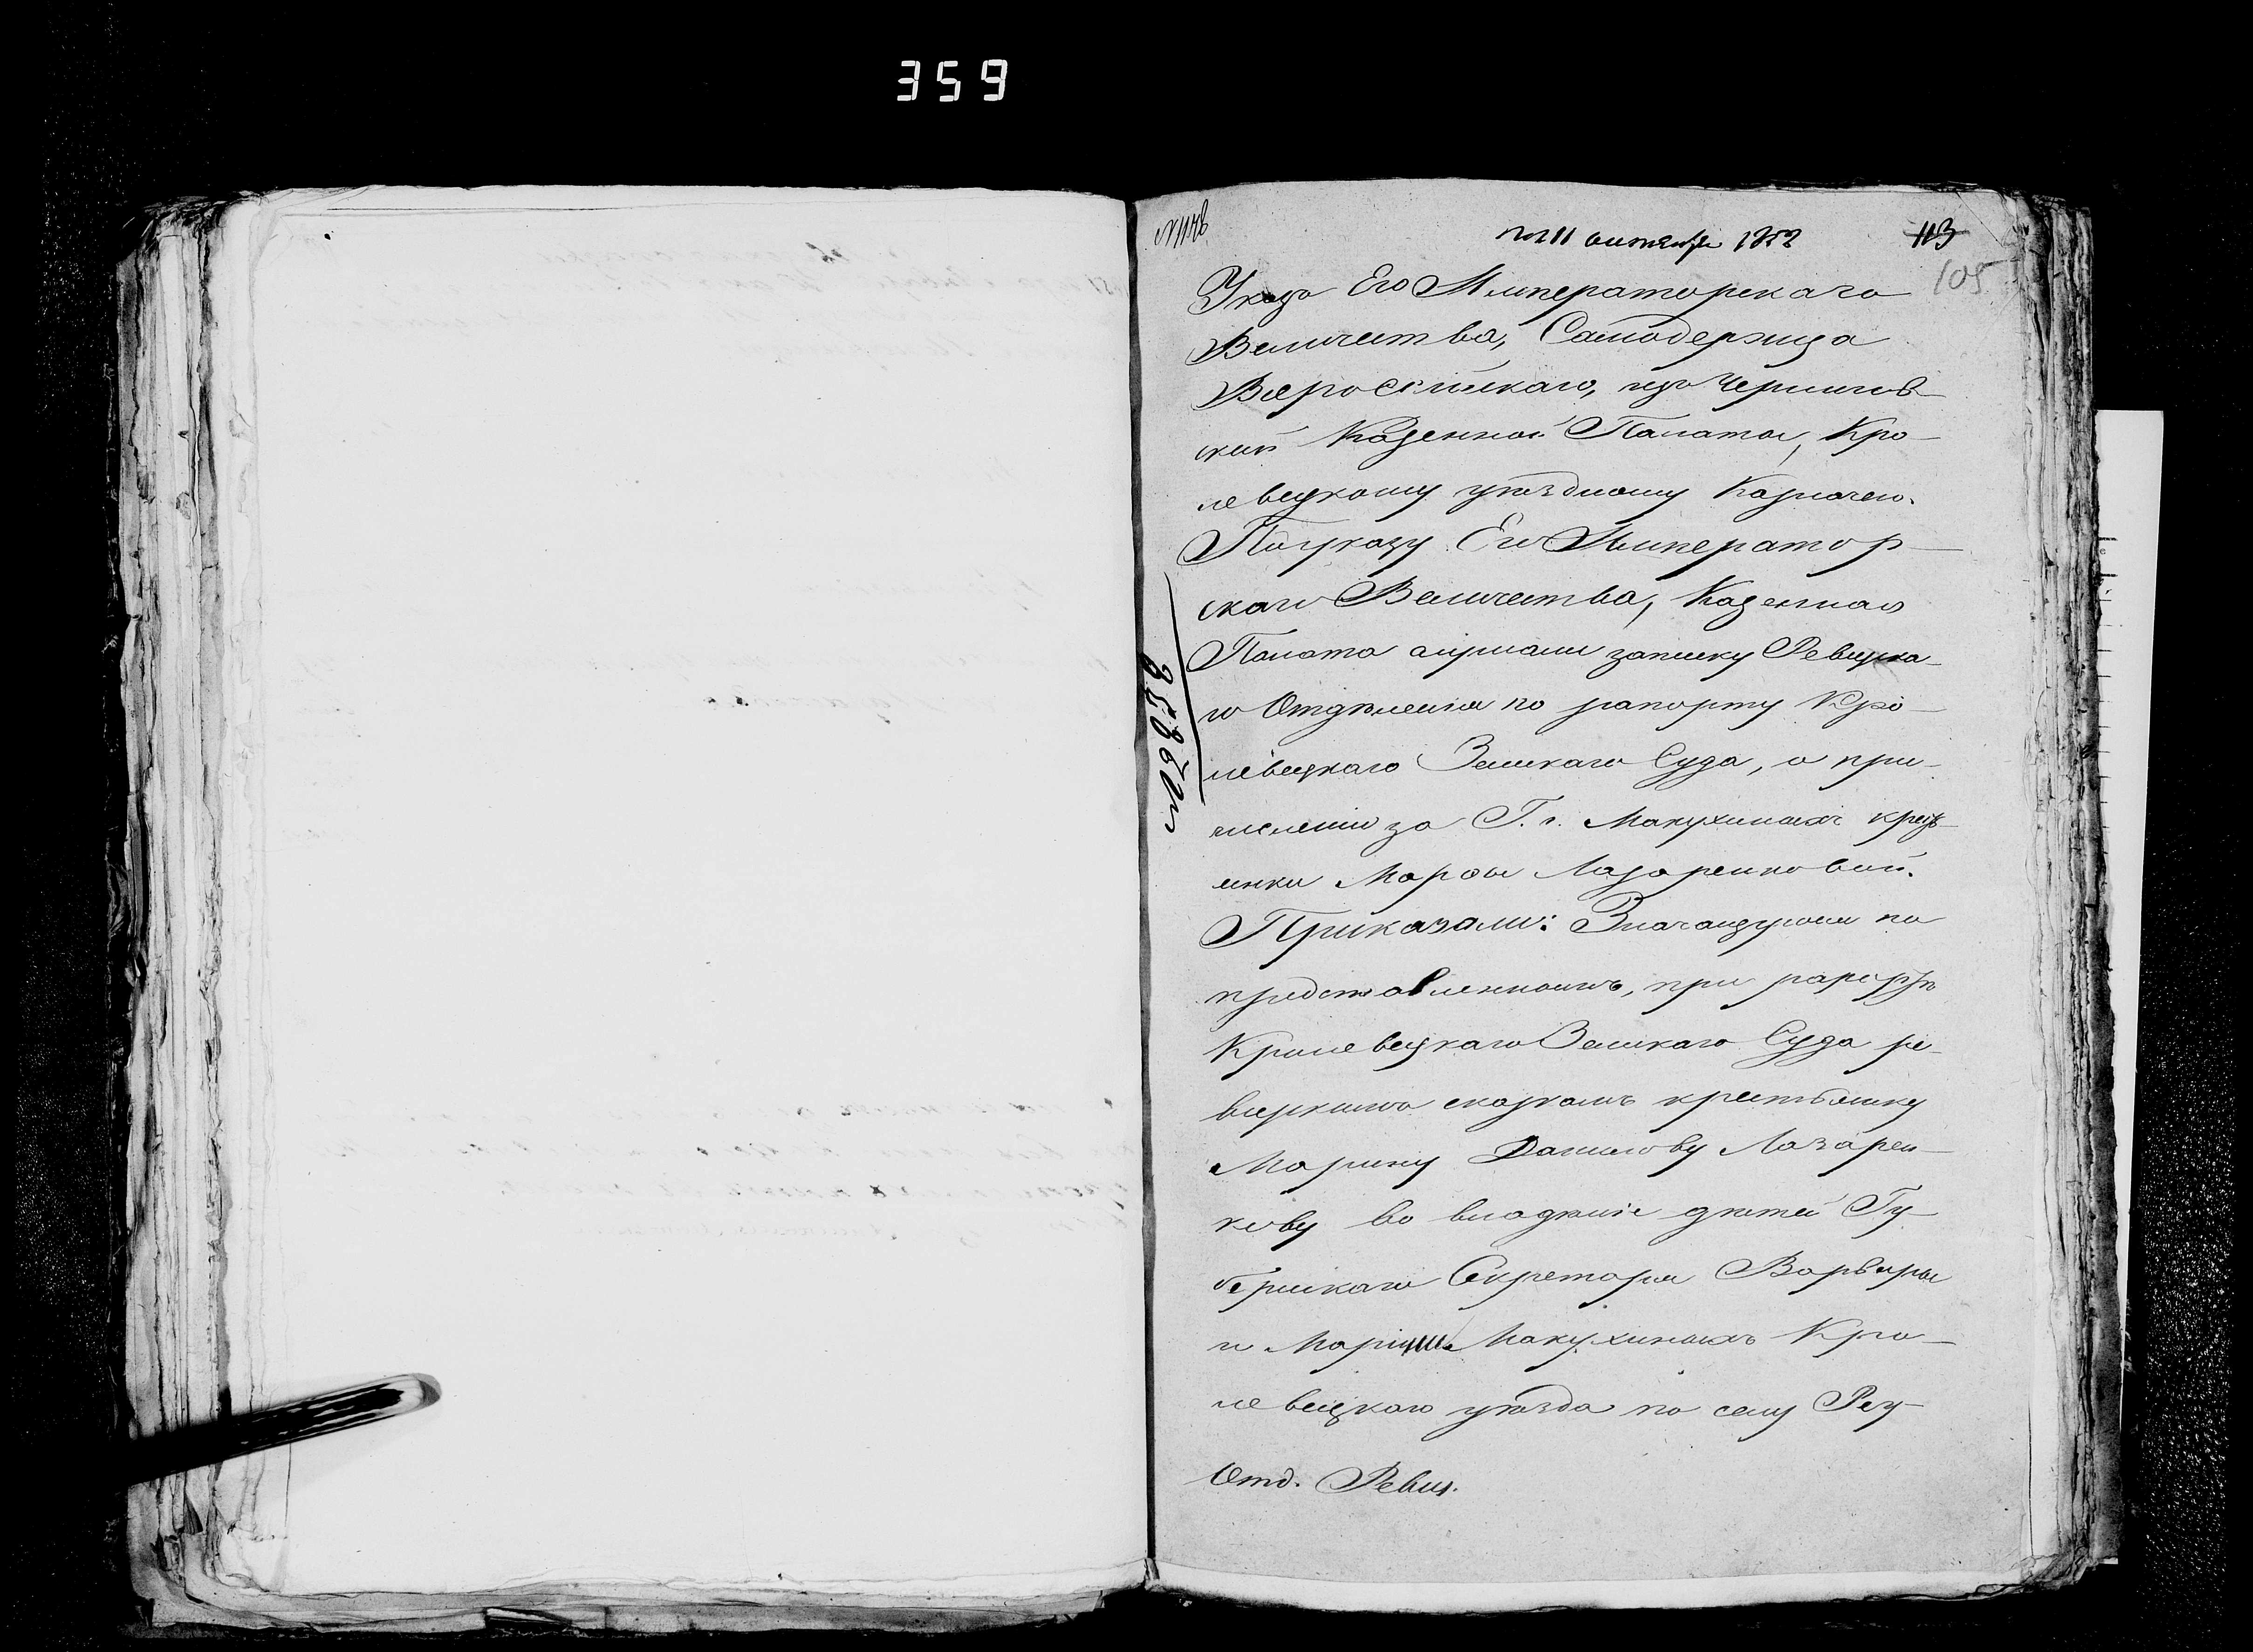 359
пол 11 октября 1852
113
105
Указъ Его Императорскаго
Величества, Самодержца
Всероссійскаго, изъ Чернигов-
ской Казенной Палаты, Кро-
левецкому уѣздному Казначею.
По указу Его Император-
скаго Величества, Казенная
Палата слушали записку Ревизска-
го Отдѣленія по рапорту Кро-
левецкаго Земскаго Суда, о при-
численіи за Г. г. Макухиныхъ кресть-
янки Марфы Лазаренковой.
Приказали: Значащуюся по
представленнымъ, при рапортѣ
Кролевецкаго Земскаго Суда ре-
визскимъ сказкамъ крестьянку
Марину Данилову Лазарен-
кову во владѣніе дѣтей Гу-
бернскаго Секретаря Варвары
и Маріи Макухиныхъ Кро-
левецкаго уѣзда по селу Реу-
Отд. Ревиз.